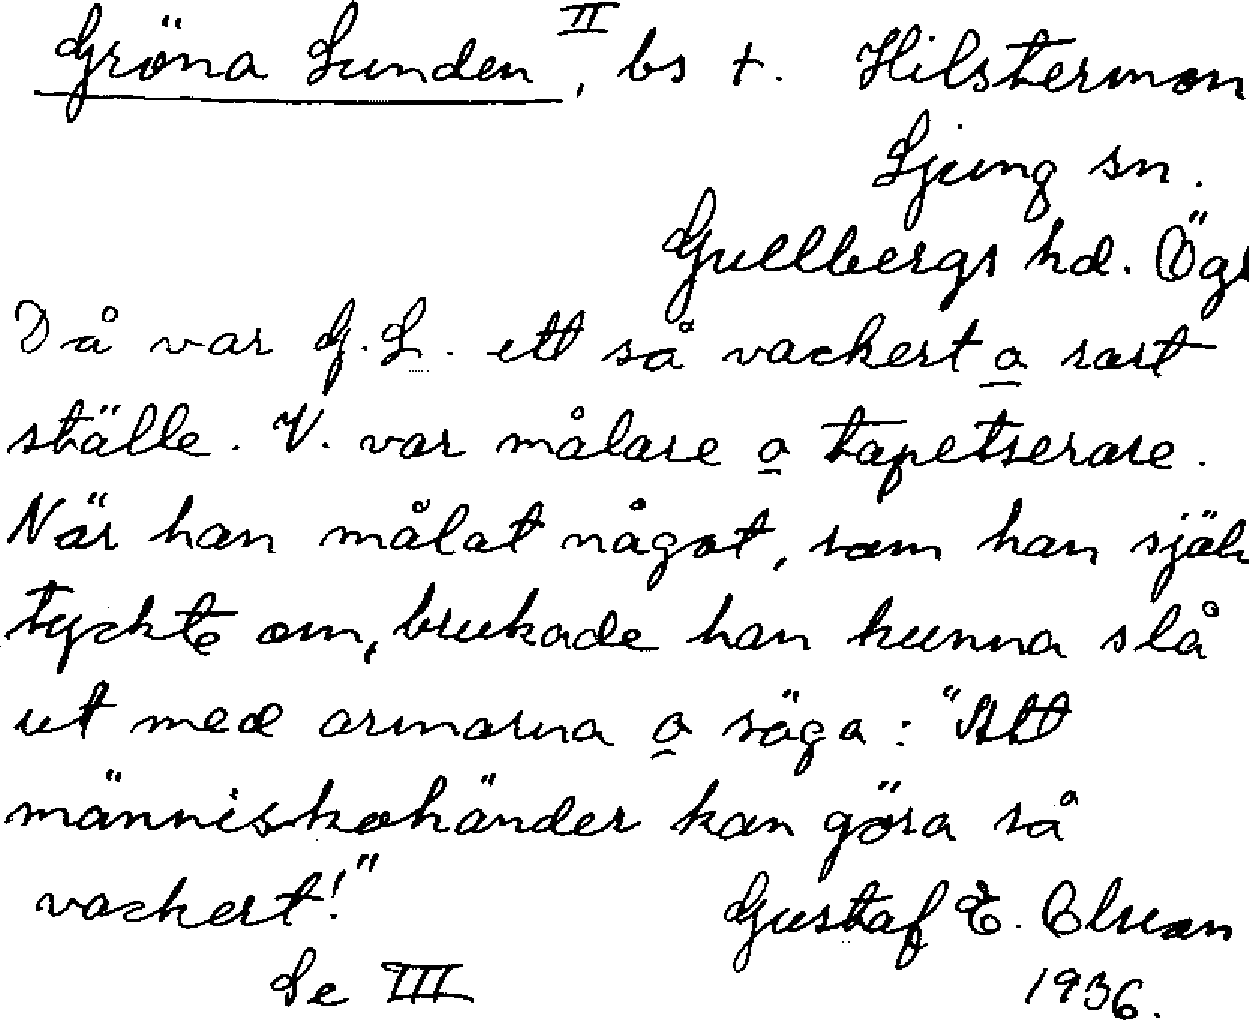 Gröna Lunden II, bs t. Hilstermon
Ljung sn.
Gullbergs hd. Ög
Då var G. L. ett så vackert o rart
ställe. V. var målare o tapetserare.
När han målat något, som han själv
tyckte om, brukade han kunna slå
ut med armarna o säga: "Att
människohänder kan göra så
vackert!"
Gustaf E.
Se III
1936.